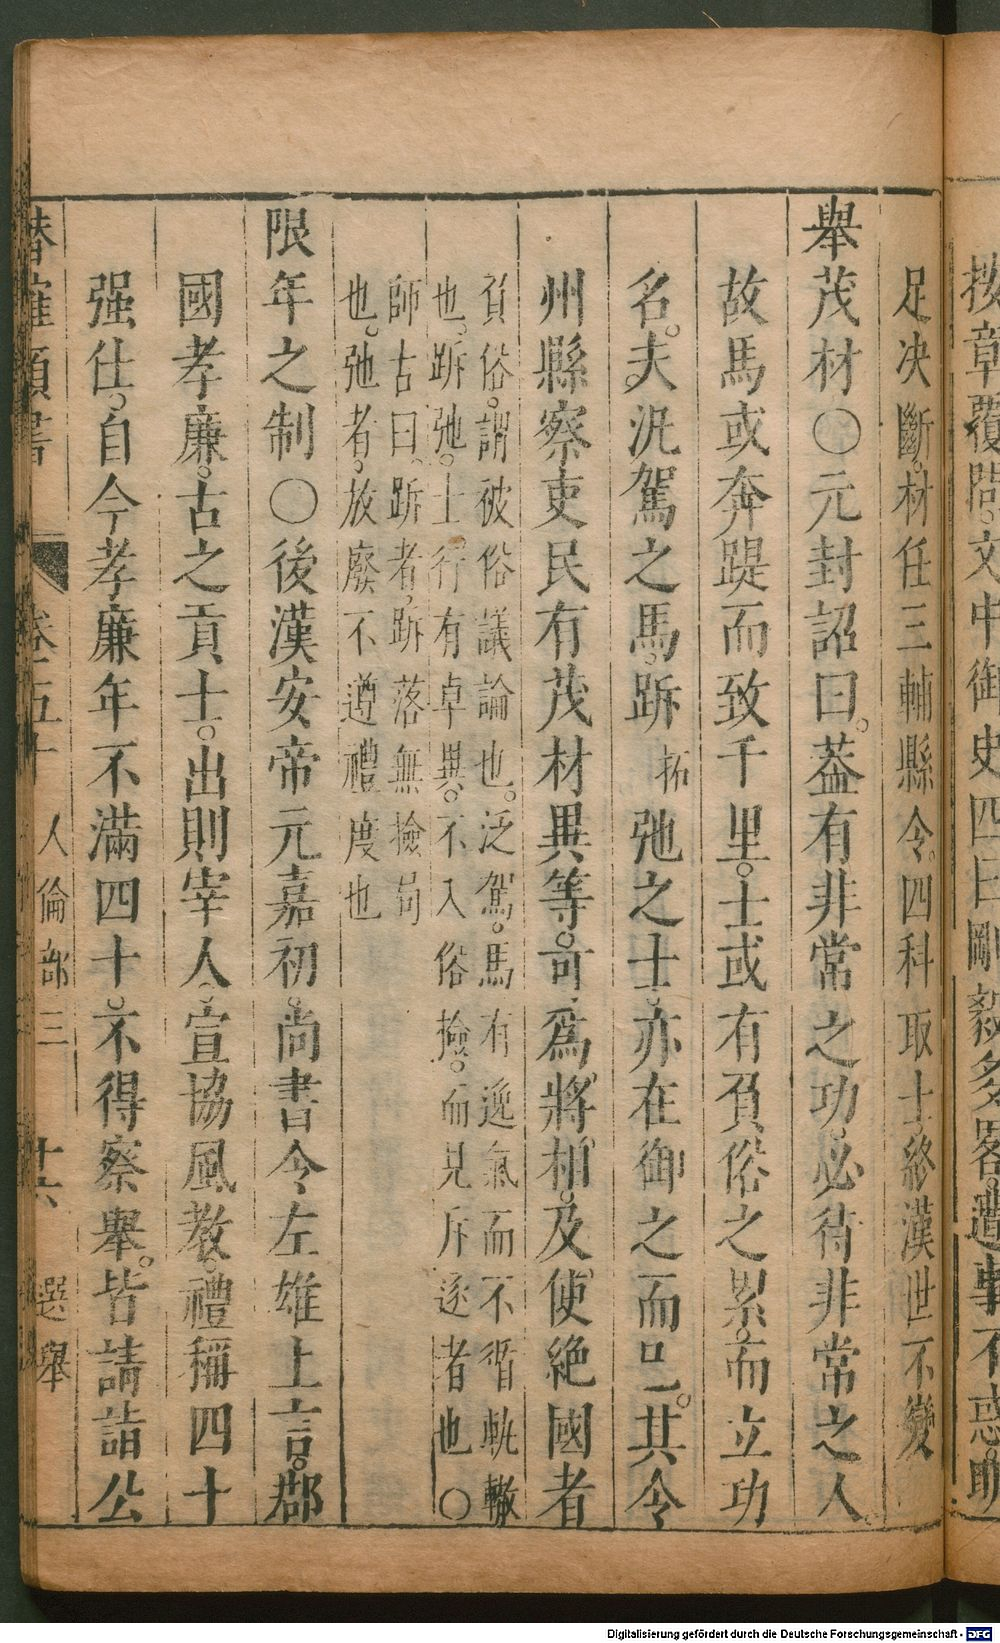 按章覆問文中御史四曰剛毅多畧遭事不惑明
足决斷材任三輔縣令四科取士終漢世不變
舉茂材○元封詔曰葢有非常之功必待非常之人
故馬或奔踶而致千里士或有負俗之累而立功
名夫汎駕之馬跅拓弛之士亦在御之而已其令
州縣察吏民有茂材異等可爲將相及使絕國者
負俗謂被俗議論也泛駕馬有逸氣而不循軌轍
也跅弛士行有卓異不入俗撿而見斥逐者也○
師古曰跅者跅落無撿局
也弛者放廢不遵禮度也
限年之制○後漢安帝元嘉初尚書令左雄上言郡
國孝廉古之貢士出則宰人宣協風教禮稱四十
强仕自今孝廉年不滿四十不得察舉皆請詣公
潛確類書 卷五十 人倫部三 十六 選舉
Digitalisierung gefördert durch die Deutsche Forschungsgemeinschaft - DFG